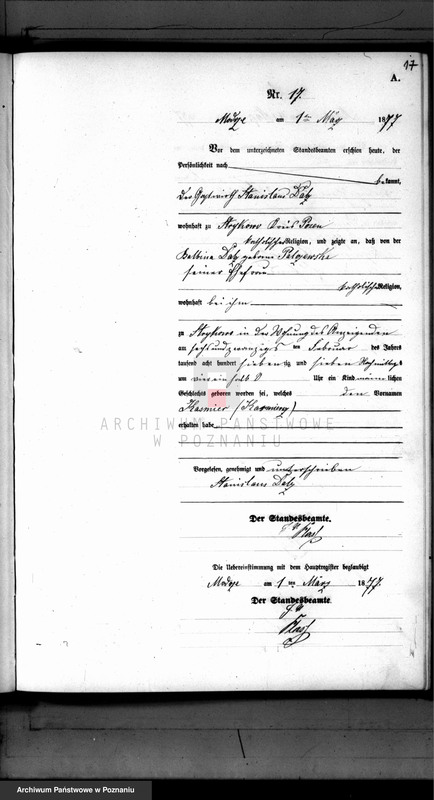 17
A.
Nr. 17.
am 1ten März 1877
Vor dem unterzeichneten Standesbeamten erschien heute, der
Persönlichkeit nach
bekannt,
der Gastwirth Stanislaus
wohnhaft zu Kreis Posen
katholischer Religion, und zeigte an, daß von der
geborene
seiner Ehefrau
katholischer Religion,
wohnhaft bei ihm
zu in der Wohnung des Anzeigenden
am sechsundzwanzigs ten Februar des Jahres
tausend acht hundert siebenzig und sieben Nachmittags
um vierein halb Uhr ein Kind männlichen
Geschlechts geboren worden sei, welches den Vornamen
Kasmier (Kasimir)
erhalten habe
ARCHIWUM PAŃSTWOWE
W POZNANIU
Vorgelesen, genehmigt und unterschrieben
Stanislaus
Der Standesbeamte.
Die Uebereinstimmung mit dem Hauptregister beglaubigt
am 1ten März 1877.
Der Standesbeamte.
Archiwum Państwowe w Poznaniu